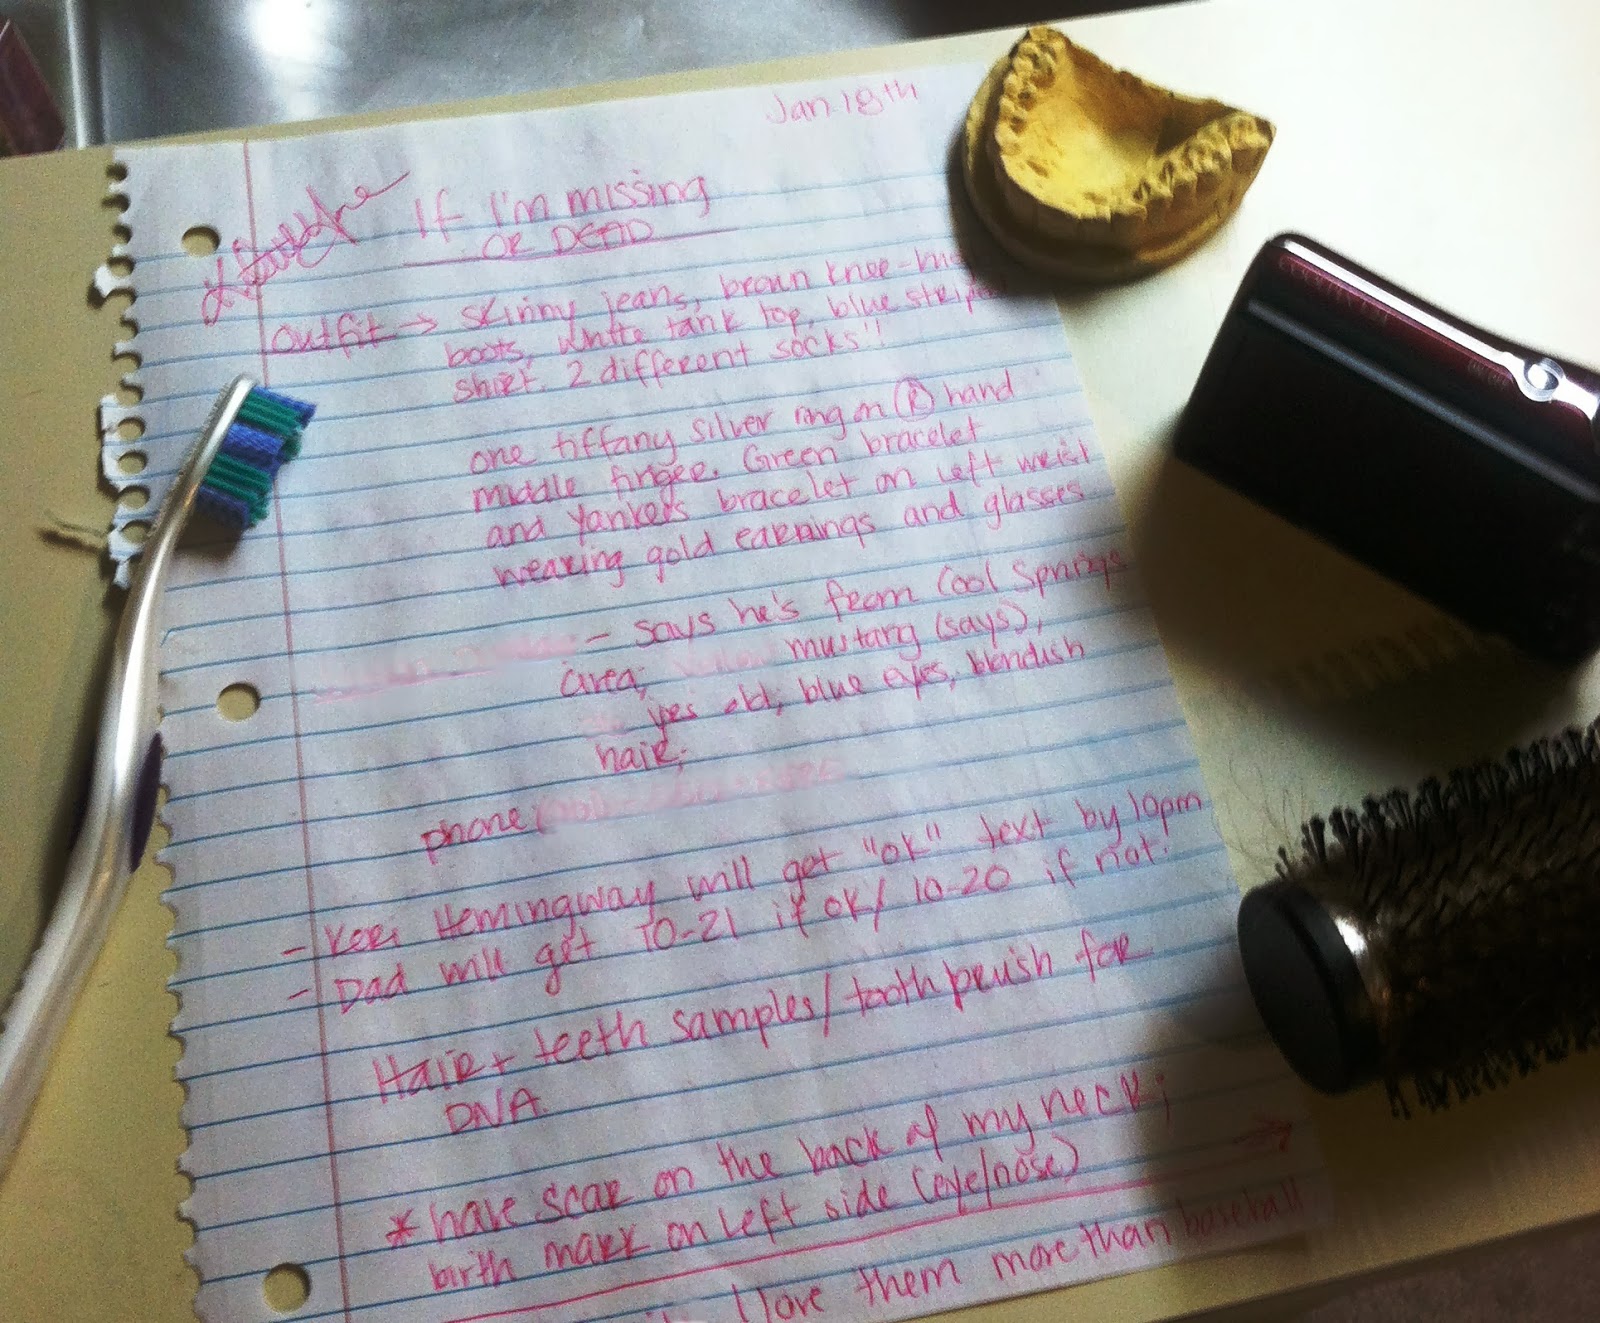 Jan. 18th
If I'm missing
OR DEAD
outfit → skinny jeans, brown knee-
boots, white tank top, blue striped
shirt. 2 different socks!!
one tiffany silver ring on (R) hand
middle finger. Green bracelet
and Yankees bracelet on left wrist
wearing gold earrings and glasses
- says he's from Cool Springs
area; mustang (says),
yrs old; blue eyes, blondish
hair;
phone
- Keri Hemingway will get "ok" text by 10pm
- Dad will get 10-21 if ok/ 10-20 if not.
Hair + teeth samples/toothbrush for
DNA.
* have scar on the back of my neck;
birth mark on left side (eye/nose) →
I love them more than baseball